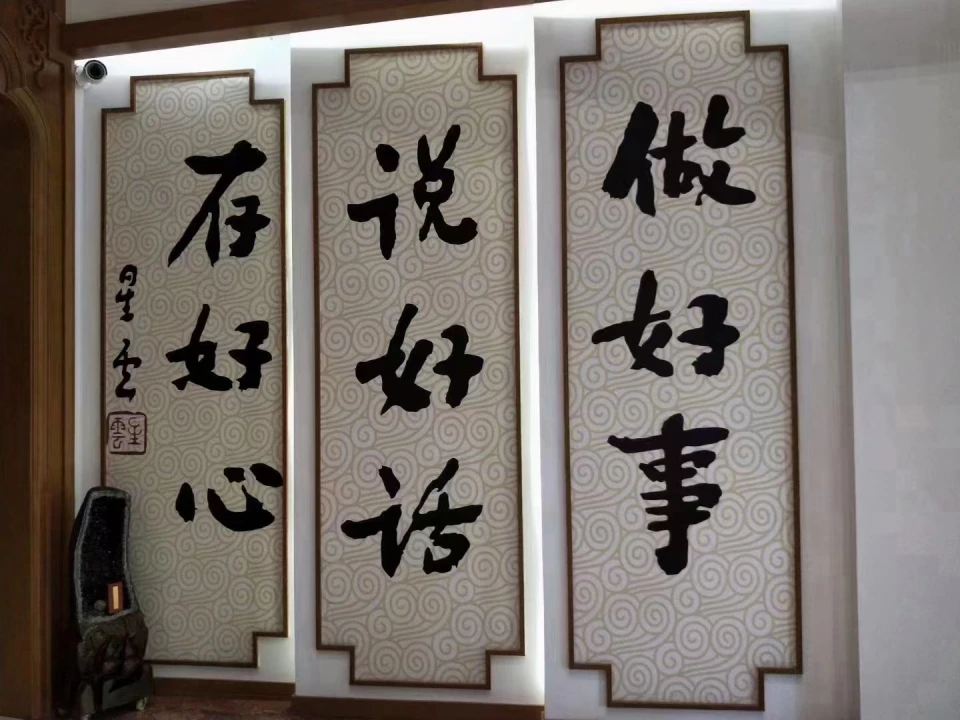 做好事
说好话
存好心
星云
星雲